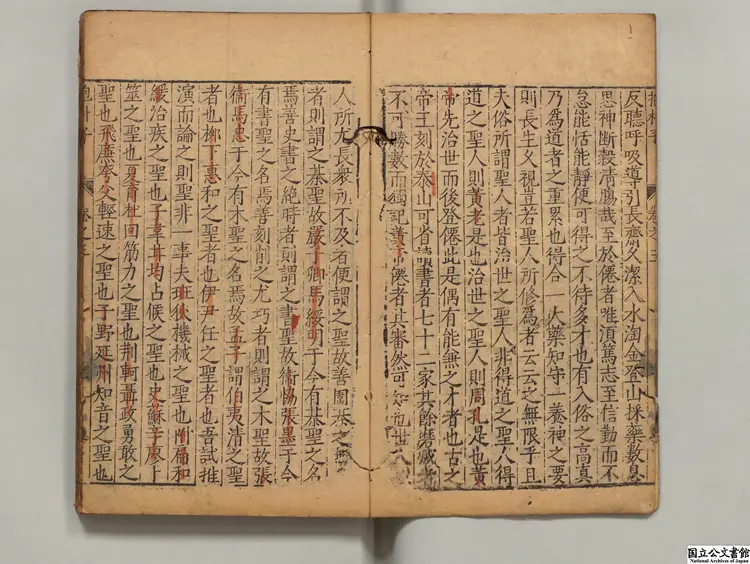 抱朴子　卷之三
反聽呼吸導引長齋久潔入水淘金登山採藥數息
思神斷穀清腸哉至於僊者唯須篤志至信勤而不
怠能恬能靜便可得之不待多才也有入俗之高真
乃為道者之重累也得合一大藥知守一養神之要
則長生久視豈若聖人所修為者云云之無限乎且
夫俗所謂聖人者皆治世之聖人非得道之聖人得
道之聖人則黃老是也治世之聖人則周孔是也黃
帝先治世而後登僊此是偶有能兼之才者也古之
帝王刻於泰山可省讀書者七十二家其餘磨滅者
不可勝數而獨記黃帝僊者其審然可知也世人
人所尤長衆所不及者便謂之聖故善圍棊之無
者則謂之棊聖故嚴子卿馬綏明于今有棊聖之名
焉善史書之絕時者則謂之書聖故衛協張墨于今
有書聖之名焉善刻削之尤巧者則謂之木聖故張
衡馬忠于今有木聖之名焉故孟子謂伯夷清之聖
者也柳下惠和之聖者也伊尹任之聖者也吾試推
演而論之則聖非一事夫班狄機械之聖也附扁和
緩治疾之聖也子韋甘均占候之聖也史蘇辛廖卜
筮之聖也夏育杜回筋力之聖也荆軻聶政勇敢之
聖也飛廉夸父輕速之聖也子野延州知音之聖也
抱朴子　卷之三
国立公文書館
National Archives of Japan